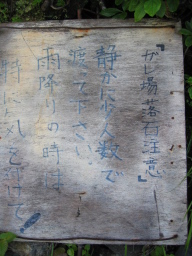 『ガレ場落石注意』
静かに少人数で
渡って下さい
雨降りの時は
特に気を付けて